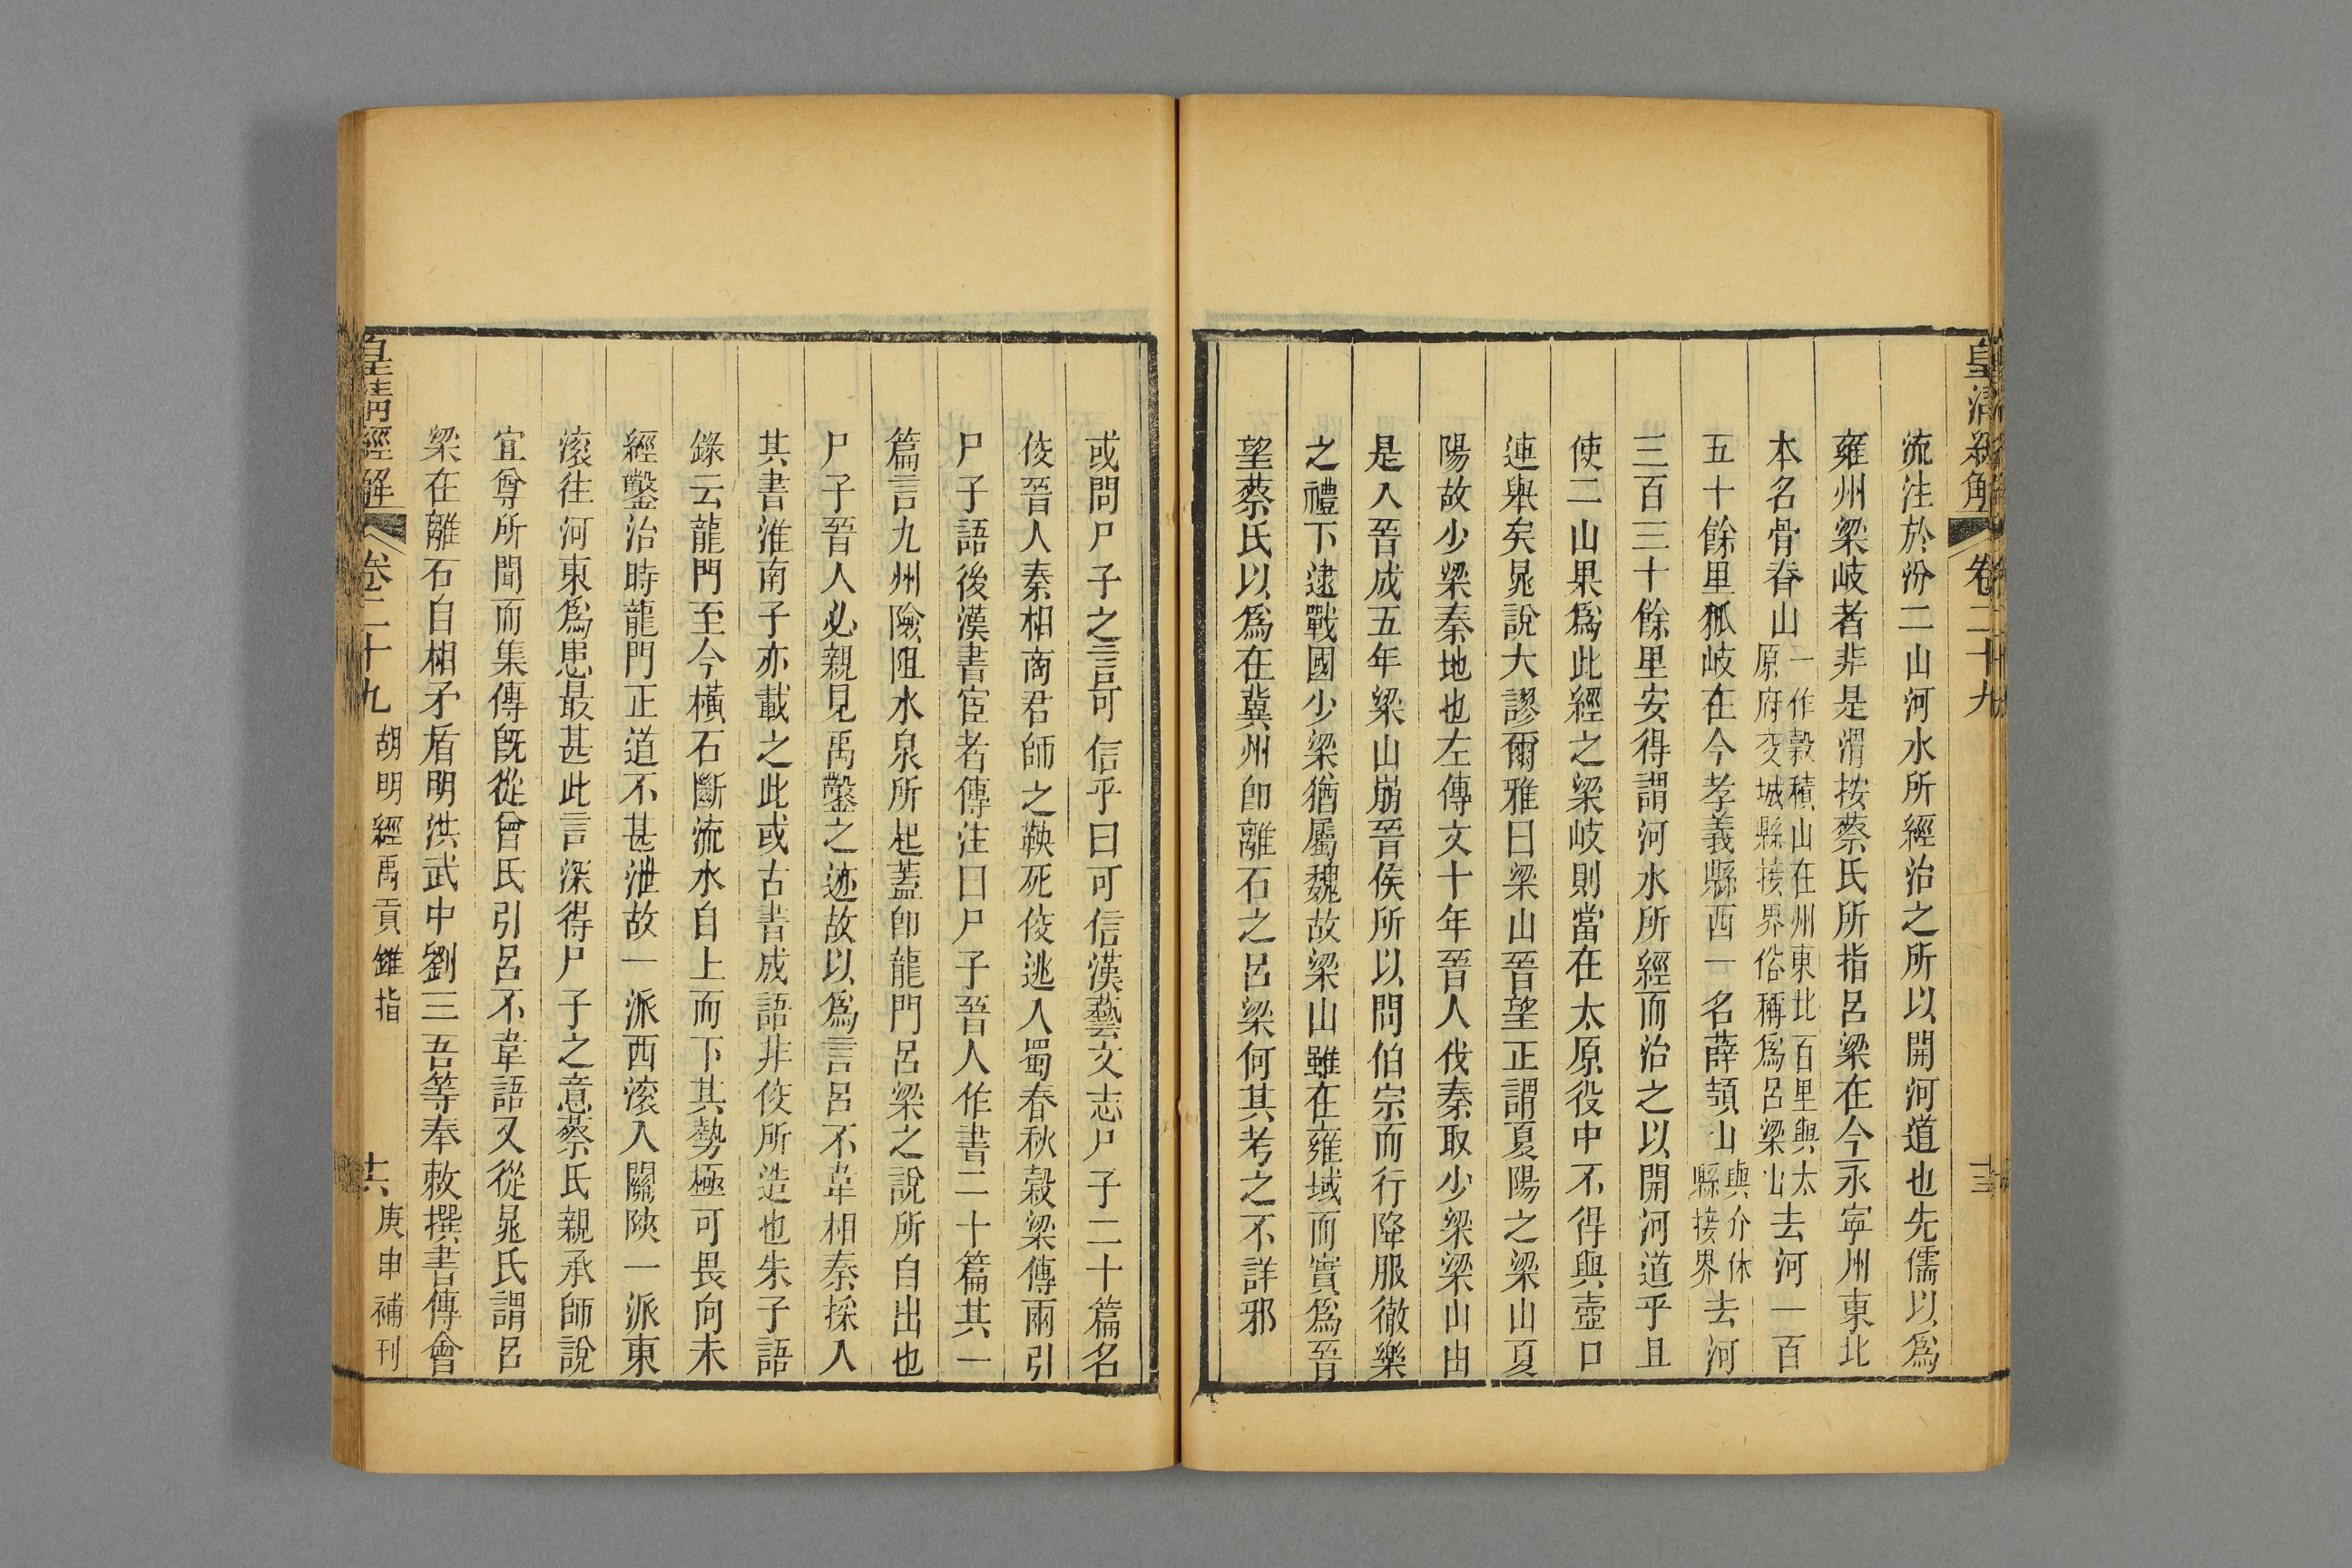 皇清經解
卷二十九
流注於汾二山河水所經治之所以開河道也先儒以爲
雍州梁岐者非是渭按蔡氏所指呂梁在今永寧州東北
本名骨脊山一作榖積山在州東北百里與太原府交城縣接界俗稱爲呂梁山去河一百
五十餘里狐岐在今孝義縣西一名薛頡山與介休縣接界去河
三百三十餘里安得謂河水所經而治之以開河道乎且
使二山果爲此經之梁岐則當在太原役中不得與壺口
連舉矣晁說大謬爾雅曰梁山晉望正謂夏陽之梁山夏
陽故少梁秦地也左傳文十年晉人伐秦取少梁梁山由
是入晉成五年梁山崩晉侯所以問伯宗而行降服徹樂
之禮下逮戰國少梁猶屬魏故梁山雖在雍域而實爲晉
望蔡氏以爲在冀州卽離石之呂梁何其考之不詳邪
或問尸子之言可信乎曰可信漢藝文志尸子二十篇名
佼晉人秦相商君師之鞅死佼逃入蜀春秋穀梁傳兩引
尸子語後漢書宦者傳注曰尸子晉人作書二十篇其一
篇言九州險阻水泉所起蓋卽龍門呂梁之說所自出也
尸子晉人必親見禹鑿之迹故以爲言呂不韋相秦採入
其書淮南子亦載之此或古書成語非佼所造也朱子語
錄云龍門至今橫石斷流水自上而下其勢極可畏向未
經鑿治時龍門正道不甚泄故一派西滚入關陝一派東
滚往河東爲患最甚此言深得尸子之意蔡氏親承師說
宜尊所聞而集傳旣從曾氏引呂不韋語又從晁氏謂呂
梁在離石自相矛盾明洪武中劉三吾等奉敕撰書傳會
皇清經解
卷二十九
胡明經禹貢錐指
十六
庚申補刊